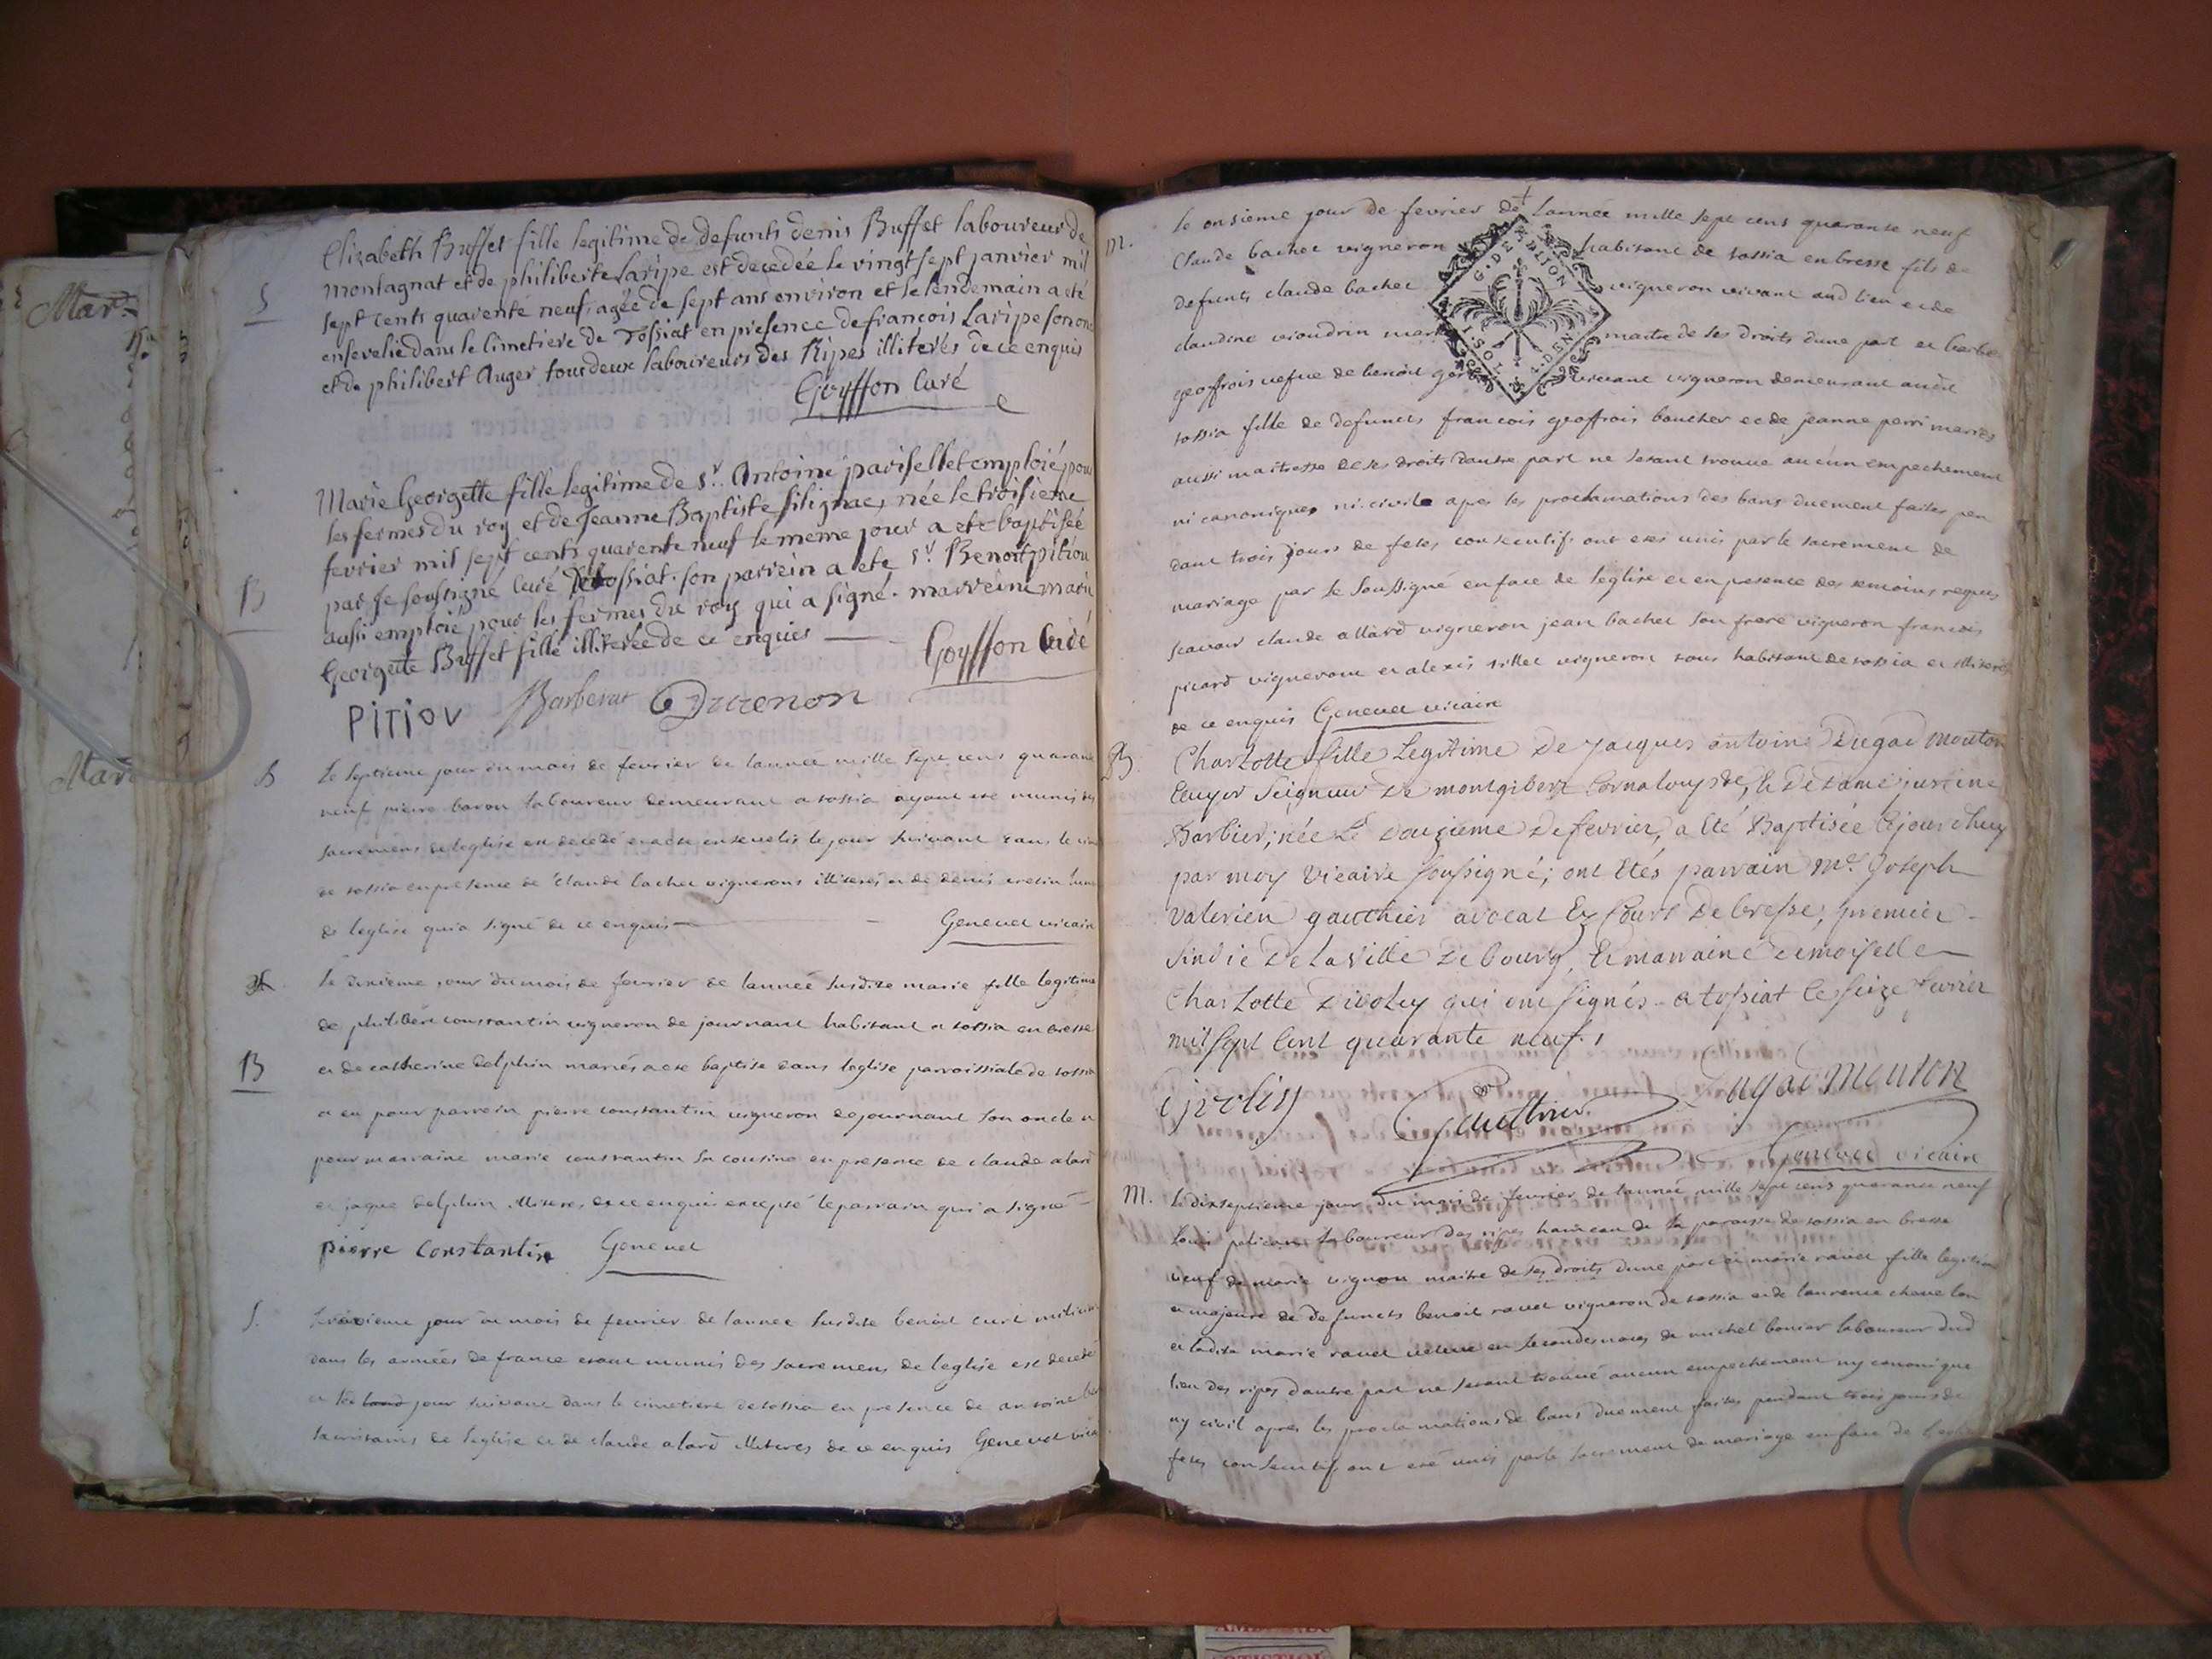 Mar.
Mar
S
Elizabeth Buffet fille legitime de defunts denis Buffet laboureur de
montagnat et de philiberte Laripe est decedée le vingt sept janvier mil
sept cents quarente neuf, agée de sept ans environ et le lendemain a eté
ensevelie dans le cimetiere de Tossiat en presence de francois Laripe son onc
et de philibert Auger tous deux laboureurs des Ripes illiterés de ce enquis
Goyffon Curé
B
Marie Georgette fille legitime de Sr. Antoine pariselle emploié pour
les fermes du roy et de Jeanne Baptiste filignac, née le troisieme
fevrier mil sept cents quarente neuf le meme jour a eté baptisée
par Je soussigné Curé de tossiat. son parrein a ete Sr. Benoit pitiou
aussi emploié pour les fermes du roy qui a signé. marreine marie
Georgette Buffet fille illiterée de ce enquise
Goyffon Curé
PITIOU Barberat Duzenon
S
Le septieme jour du mois de fevrier de lannée mille sept cens quarante
neuf pierre baron laboureur demeurant a tossia ayant ete munis des
sacremens de leglise est decedé et a ete ensevelis le jour suivant dans le cim
de tossia en presence de Claude bachet vignerons illiterés et de denis
de leglise qui a signé de ce enquis
Genevet vicaire
B
Le dixieme jour du mois de fevrier de lannée susdite marie fille legitime
de philibert constantin vigneron de journans habitant a tossia en bresse
et de catherine delphin mariés a ete baptise dans leglise parroissiale de tossia
a eu pour parrein pierre constantin vigneron de journans son oncle et
pour marraine marie constantin sa cousine en presence de claude alard
et jaque delphin illiteres de ce enquis excepté le parrain qui a signé
pierre constantin Genevet
S.
jour du mois de fevrier de lannee susdite benoit curt milicien
dans les armées de france etant munis des sacremens de leglise est decedé
et le jour suivant dans le cimetiere de tossia en presence de antoine
de leglise et de claude alard illiteres de ce enquis Genevet vica
m.
le onsieme jour de fevrier de lannée mille sept cens quarante neuf
Claude bachet vigneron habitant de tossia en bresse fils de
defunts claude bachet vigneron vivant aud lieu et de
claudine vioudrin mar maitre de ses droits dune part et
geoffrois vefve de benoit vivant vigneron demeurant audit
tossia fille de defuncts francois geoffrois boucher et de jeanne perri mariés
aussi maitresse de ses droits dautre part ne sestant trouvé aucun empechement
ni canonique ni civile apres les proclamations des bans duement faites pen
dant trois jours de fetes consecutifs ont etes unis par le sacrement de
mariage par le soussigné en face de leglise et en presence des temoins requis
scavoir claude allard vigneron jean bachet son frere vigneron francois
picard vigneron et alexis tillet vigneron tous habitant de tossia et illiteres
de ce enquis Genevet vicaire
B
Charlotte fille Legitime de jacques antoine Dugad mouton
Ecuyer Seigneur de montgibert Cornaloup &c, et de dame justine
Barbier; née Le douzieme de fevrier, a Eté Baptisée cejourdhuy
par moy Vicaire soussigné; ont Etés parrain Mr. Joseph
Valerien gauthier avocat En Cours De bresse, premier
sindic De la Ville De bourg, Et marraine Demoiselle
Charlotte Divoley qui ont signés. a tossiat le seize fevrier
mil sept cent quarante neuf.
Gauthier Dugad mouton
Genevet vicaire
m.
Le dixseptieme jour du mois de fevrier de lannée mille sept cens quarante neuf
laboureur des ripes hameau de la paroisse de tossia en bresse
veuf de marie vignon maitre de ses droits dune part et marie ravet fille legitime
et majeure de defuncts benoit ravet vigneron de tossia et de laurence
et ladite marie ravet veuve en secondes noces de michel bonier laboureur dud
lieu des ripes dautre part ne sestant trouvé aucun empechement ny canonique
ny civil apres les proclamations de bans duement faites pendant trois jours de
fetes consecutifs ont eté unis par le sacrement de mariage en face de leglise